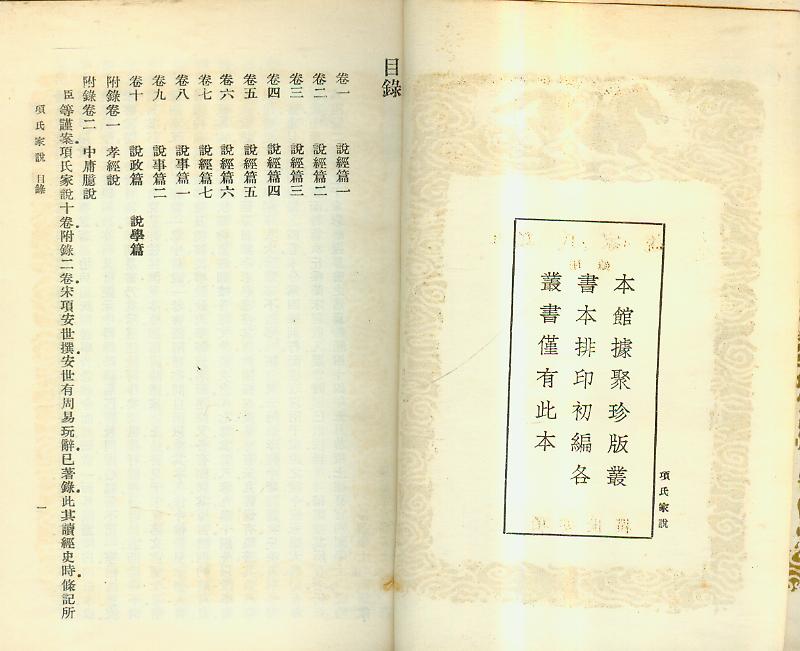 本館據聚珍版叢
書本排印初編各
叢書僅有此本
項氏家說
目錄
卷一 說經篇一
卷二 說經篇二
卷三 說經篇三
卷四 說經篇四
卷五 說經篇五
卷六 說經篇六
卷七 說經篇七
卷八 說事篇一
卷九 說事篇二
卷十 說政篇 說學篇
附錄卷一 孝經說
附錄卷二 中庸臆說
臣等謹案項氏家說十卷附錄二卷宋項安世撰安世有周易玩辭已著錄此其讀經史時條記所
項氏家說 目錄 一